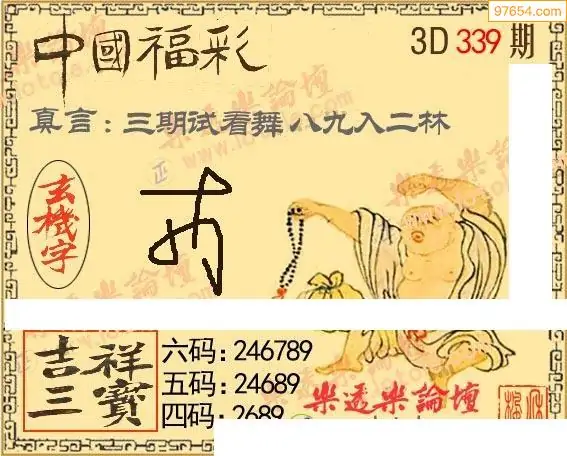 97654.com
中國福彩
3D 339 期
真言：三期试看舞 八九入二林
玄機字
吉祥三寶
六码:246789
五码:24689
四码:2689
樂透樂論壇